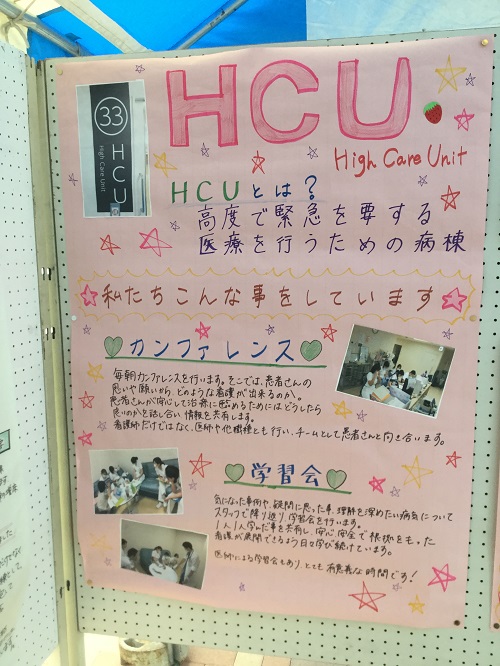 HCU
High Care Unit
33
HCU
High Care Unit
HCUとは?
高度で緊急を要する
医療を行うための病棟
私たちこんな事をしています
カンファレンス
毎朝カンファレンスを行います。そこでは、患者さんの
思いや願いから、どのような看護が出来るのか。
患者さんが安心して治療に臨めるためにはどうしたら
良いのかを話し合い情報を共有します。
看護師だけではなく、医師や他職種とも行い、チームとして患者さんと向き合います。
学習会
気になった事例や、疑問に思った事、理解を深めたい病気について
スタッフで振り返り学習会を行います。
1人1人学んだ事を共有し、安心安全で根拠をもった
看護が展開できるよう日々学び続けています。
医師による学習会もあり、とても有意義な時間です!